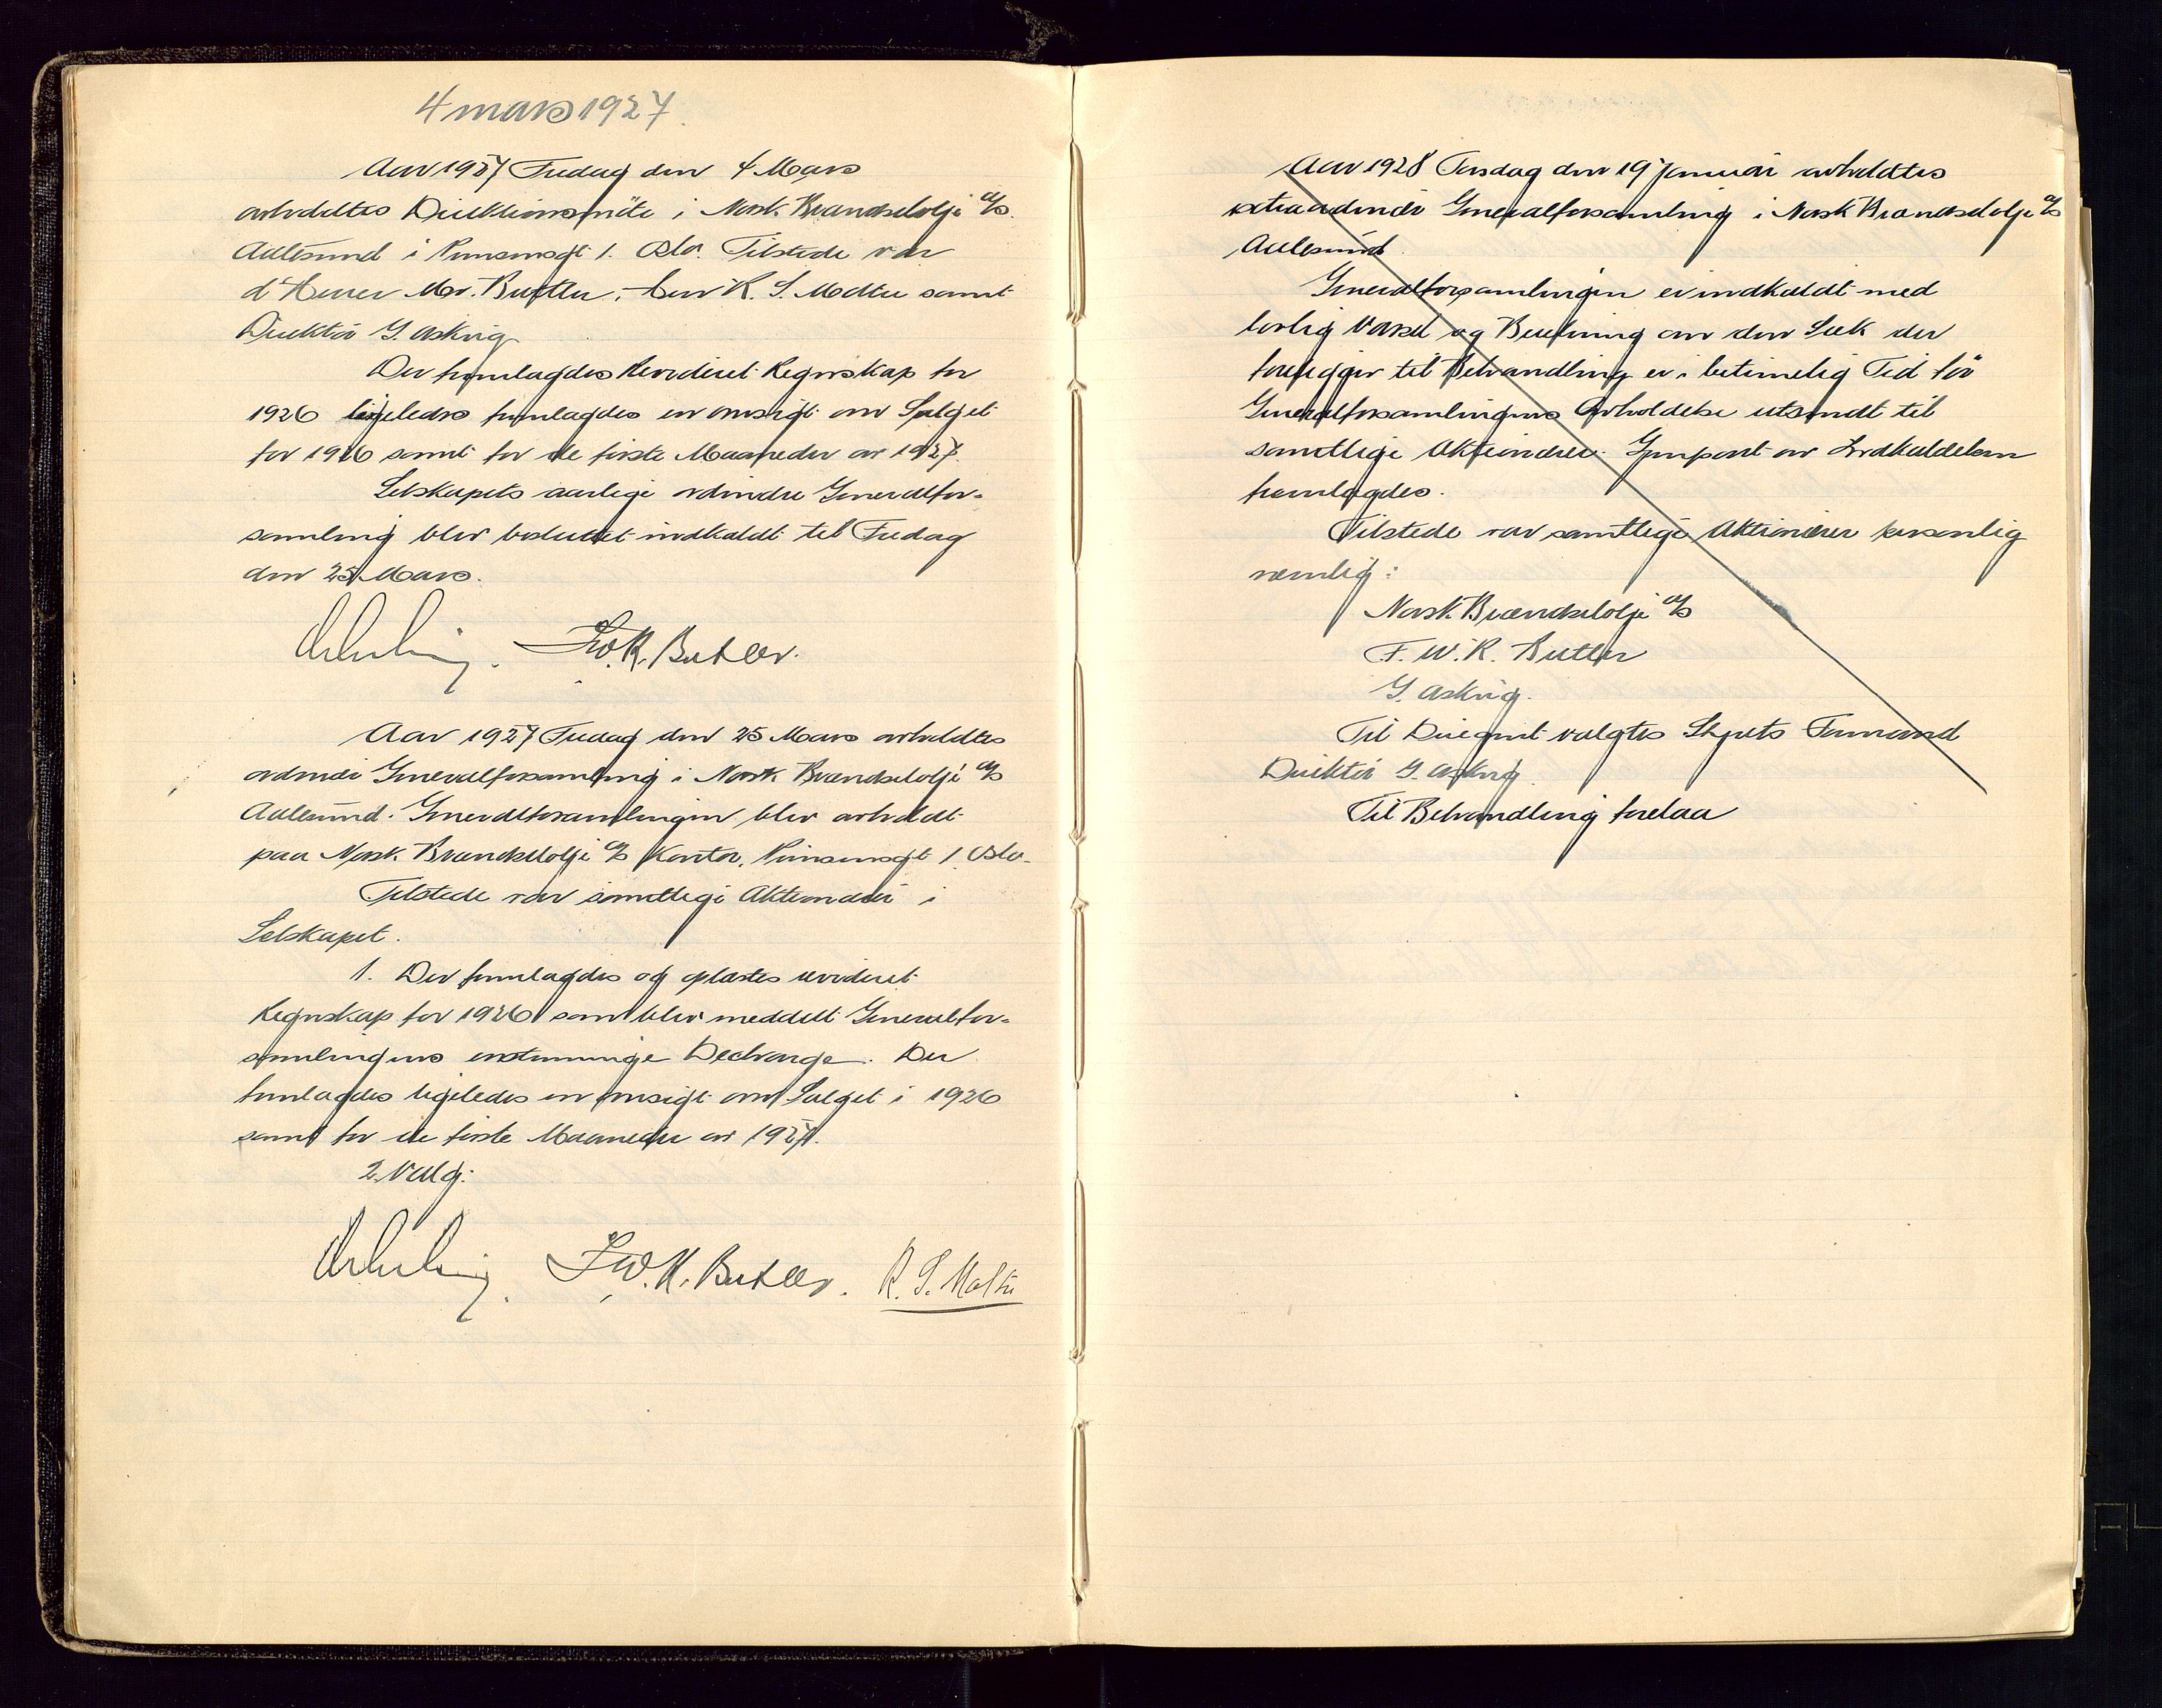 4 mars 1927.
Aar 1927 Fredag den 4 Mars
avholdtes Direktionsmöte i Norsk Brændselolje A/S
Aalesund i Prinsensgt 1. Oslo. Tilstede var
d'Herrer Mr. Butler, Herr R. S. Moltu samt
Direktör G. Askvig
Der fremlagdes Revideret Regnskap for
1926 ligeledes fremlagdes en oversigt over Salget
for 1926 samt for de förste Maaneder av 1927.
Selskapets aarlige ordinære Generalfor-
samling blev besluttet indkaldt til Fredag
den 25 Mars.
F.W.R. Butler.
Aar 1927 Fredag den 25 Mars avholdtes
ordinær Generalforsamling i Norsk Brændselolje A/S
Aalesund. Generalforsamlingen blev avholdt
paa Norsk Brændselolje A/S Kontor, Prinsensgt 1. Oslo.
Tilstede var samtlige Aktionærer i
Selskapet.
1. Der fremlagdes og oplæstes revideret
Regnskap for 1926 som blev meddelt Generalfor-
samlingens enstemmige Decharge. Der
fremlagdes ligeledes en oversigt over Salget i 1926
samt for de förste Maaneder av 1927.
2. Valg:
F.W.R. Butler. R. S. Moltu
Aar 1928 Torsdag den 19 Januar avholdtes
extraordinær Generalforsamling i Norsk Brændselolje A/S
Aalesund.
Generalforsamlingen er indkaldt med
lovlig Varsel og Beretning om den Sak der
foreligger til Behandling er i betimelig Tid för
Generalforsamlingens Avholdelse utsendt til
samtlige Aktionærer. Genpart av Indkaldelsen
fremlagdes.
Tilstede var samtlige Aktionærer personlig
nemlig:
Norsk Brændselolje A/S
F. W. R. Butler
G. Askvig.
Til Dirigent valgtes Styrets Formand
Direktör G. Askvig
Til Behandling forelaa